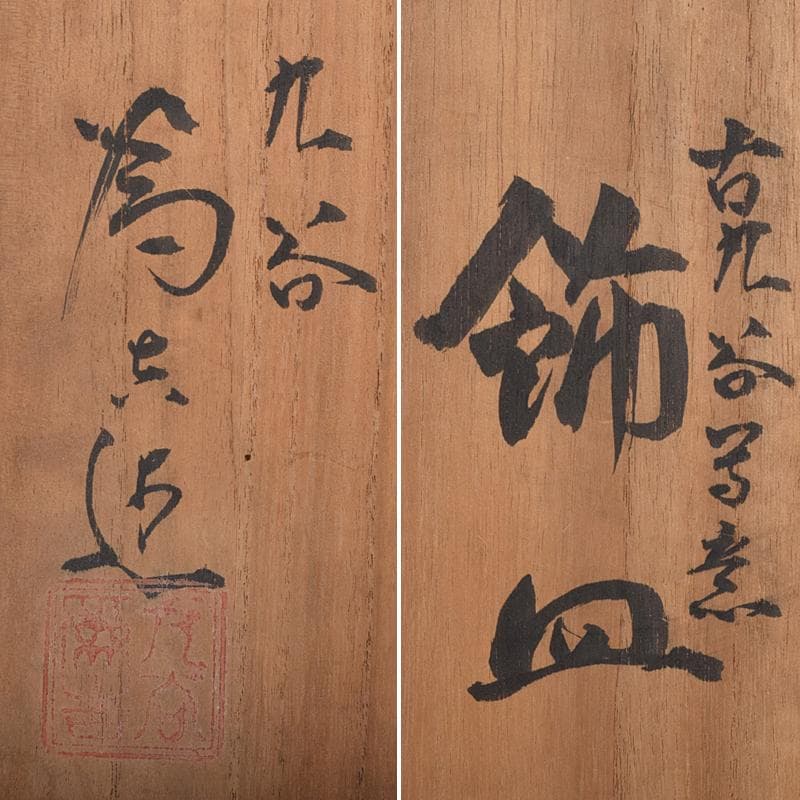 九谷
為吉造
古九谷写意
飾皿